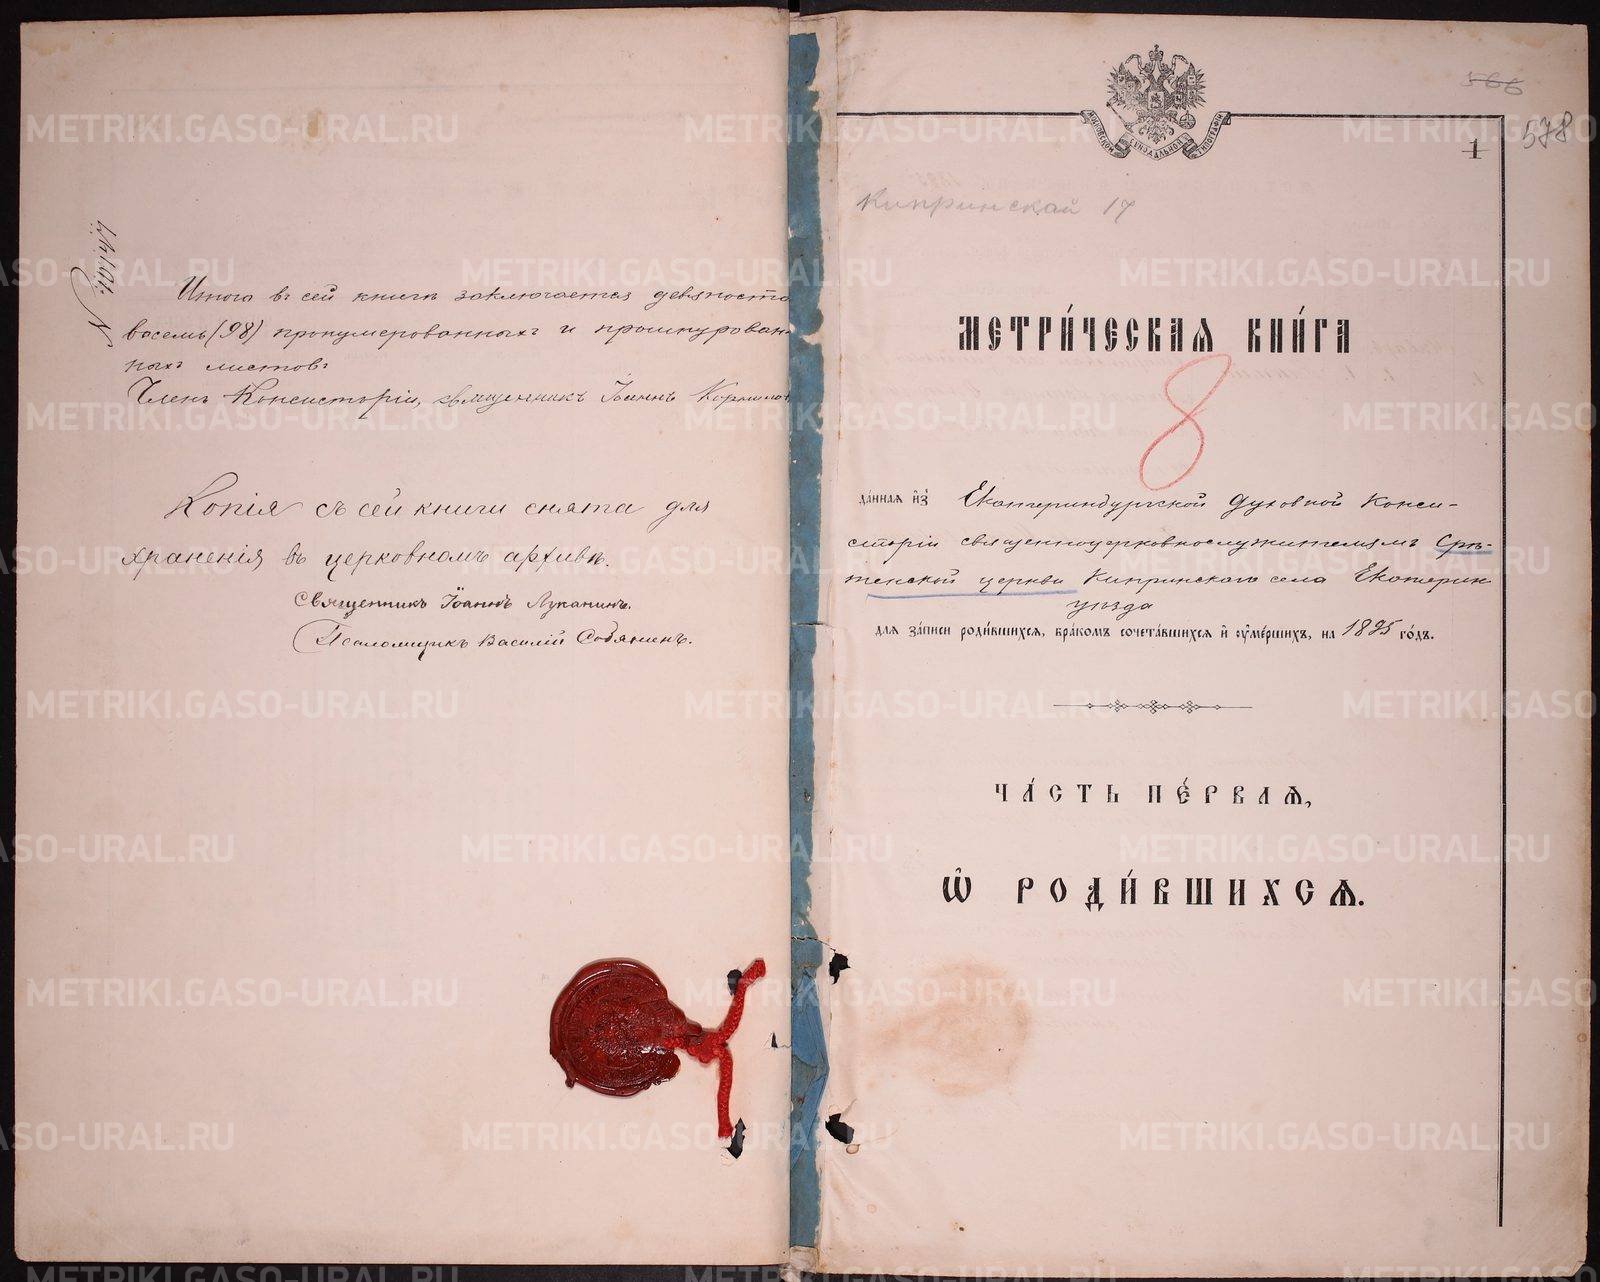 Итого въ сей книгѣ заключается девяносто
восемь (98) пронумерованныхъ и прошнурован-
ныхъ листовъ
Членъ Консисторіи, священникъ Іоаннъ
Копія съ сей книги снята для
храненія въ церковномъ архивѣ.
Священникъ Іоаннъ Луканинъ.
Псаломщикъ Василій Собянинъ.
566
578
1
СѴНОДАЛЬНОЙ ТИПОГРАФІИ
Кипринской 17
МЕТРИ́ЧЕСКАЯ КНИ́ГА
8
да́нная и҆зъ Екатеринбургской Духовной Конси-
сторіи священноцерковнослужителямъ Срѣ-
тенской церкви Кипринскаго села Екатерин
уѣзда
для за́писи роди́вшихся, бра́комъ сочета́вшихся и҆ ᲂу҆ме́ршихъ, на 1895 го́дъ.
ЧА́СТЬ ПЕ́РВАЯ,
Ѡ҆ РОДИ́ВШИХСЯ.
METRIKI.GASO-URAL.RU